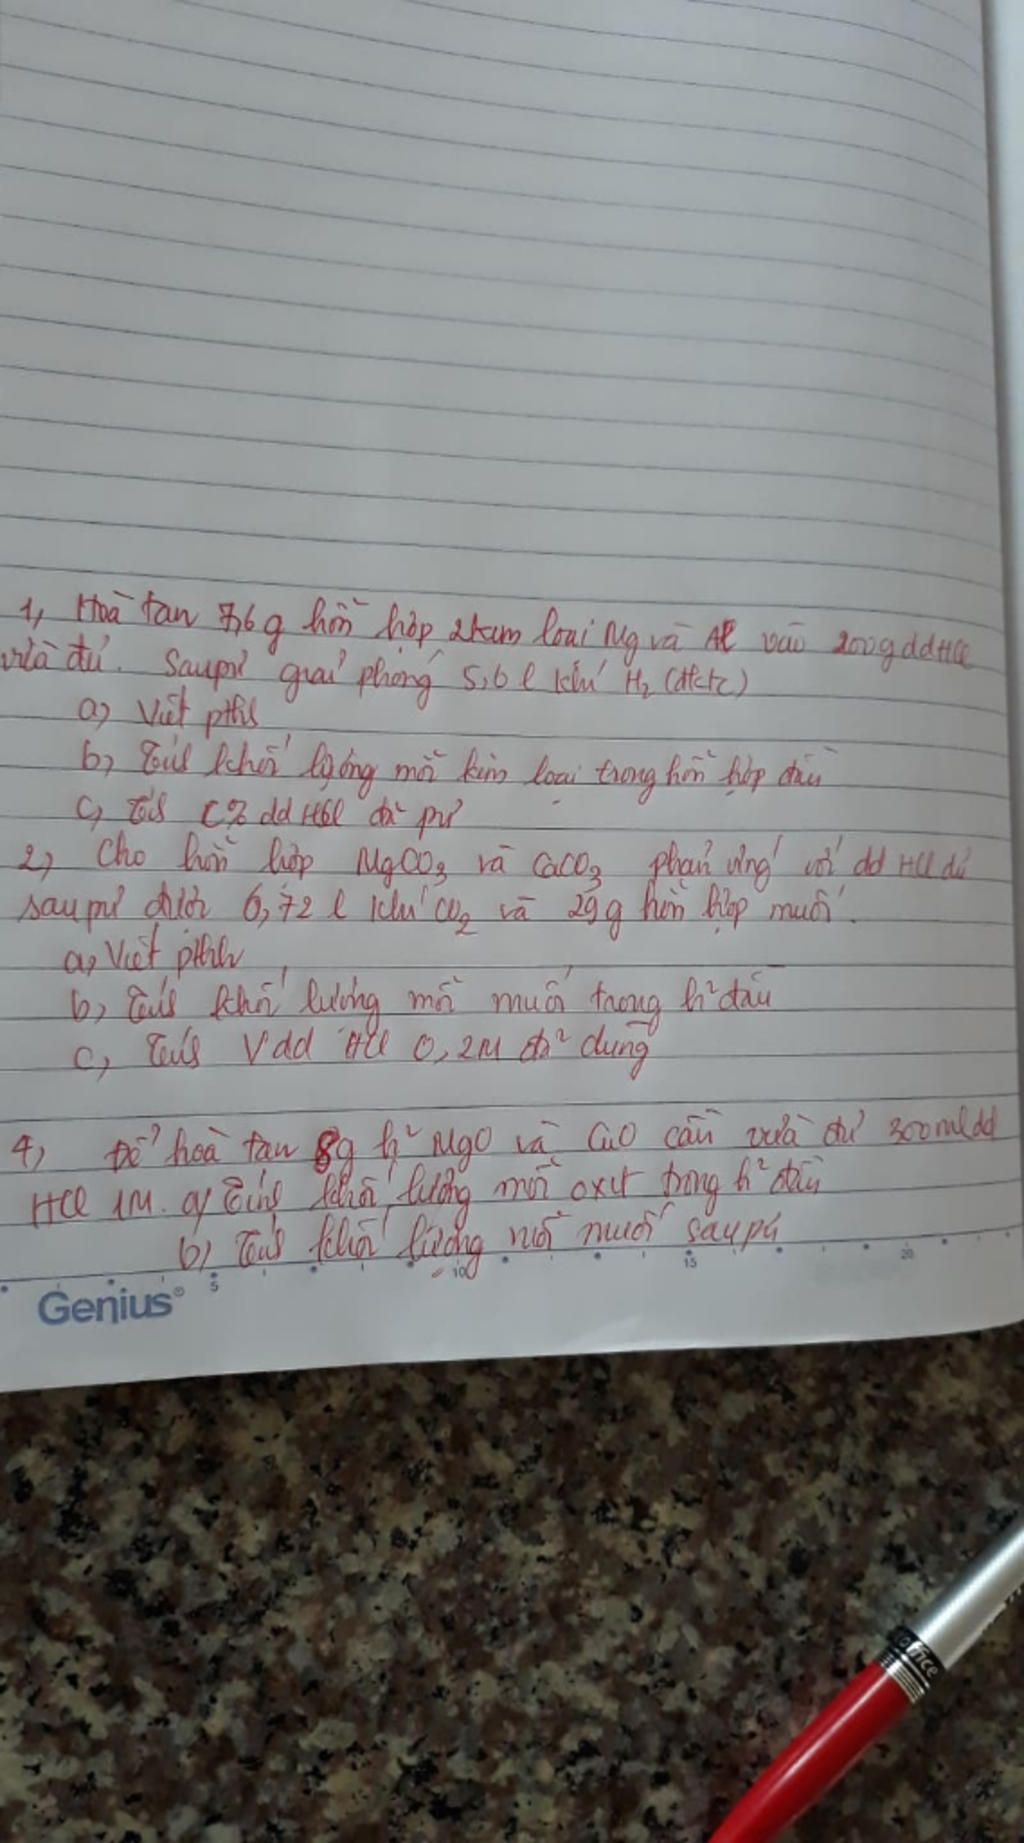 1, Hoà tan 7,6 g hỗn hợp 2 kim loại Mg và Al vào 200g dd HCl
vừa đủ. Sau pứ giải phóng 5,6 l khí H2 (đktc)
a) Viết pthh
b) Tính khối lượng mỗi kim loại trong hỗn hợp đầu
c) Tính C% dd HCl đã pứ
2) Cho hỗn hợp MgCO3 và CaCO3 phản ứng với dd HCl dư
sau pứ được 6,72 l khí CO2 và 29 g hỗn hợp muối.
a, Viết pthh
b) Tính khối lượng mỗi muối trong h² đầu
c, Tính Vdd HCl 0,2M đã dùng
4) Để hoà tan 8g h² MgO và CuO cần vừa đủ 300 ml dd
HCl 1M. a) Tính khối lượng mỗi oxit trong h² đầu
b) Tính khối lượng mỗi muối sau pứ
Genius®
5 10 15 20
office